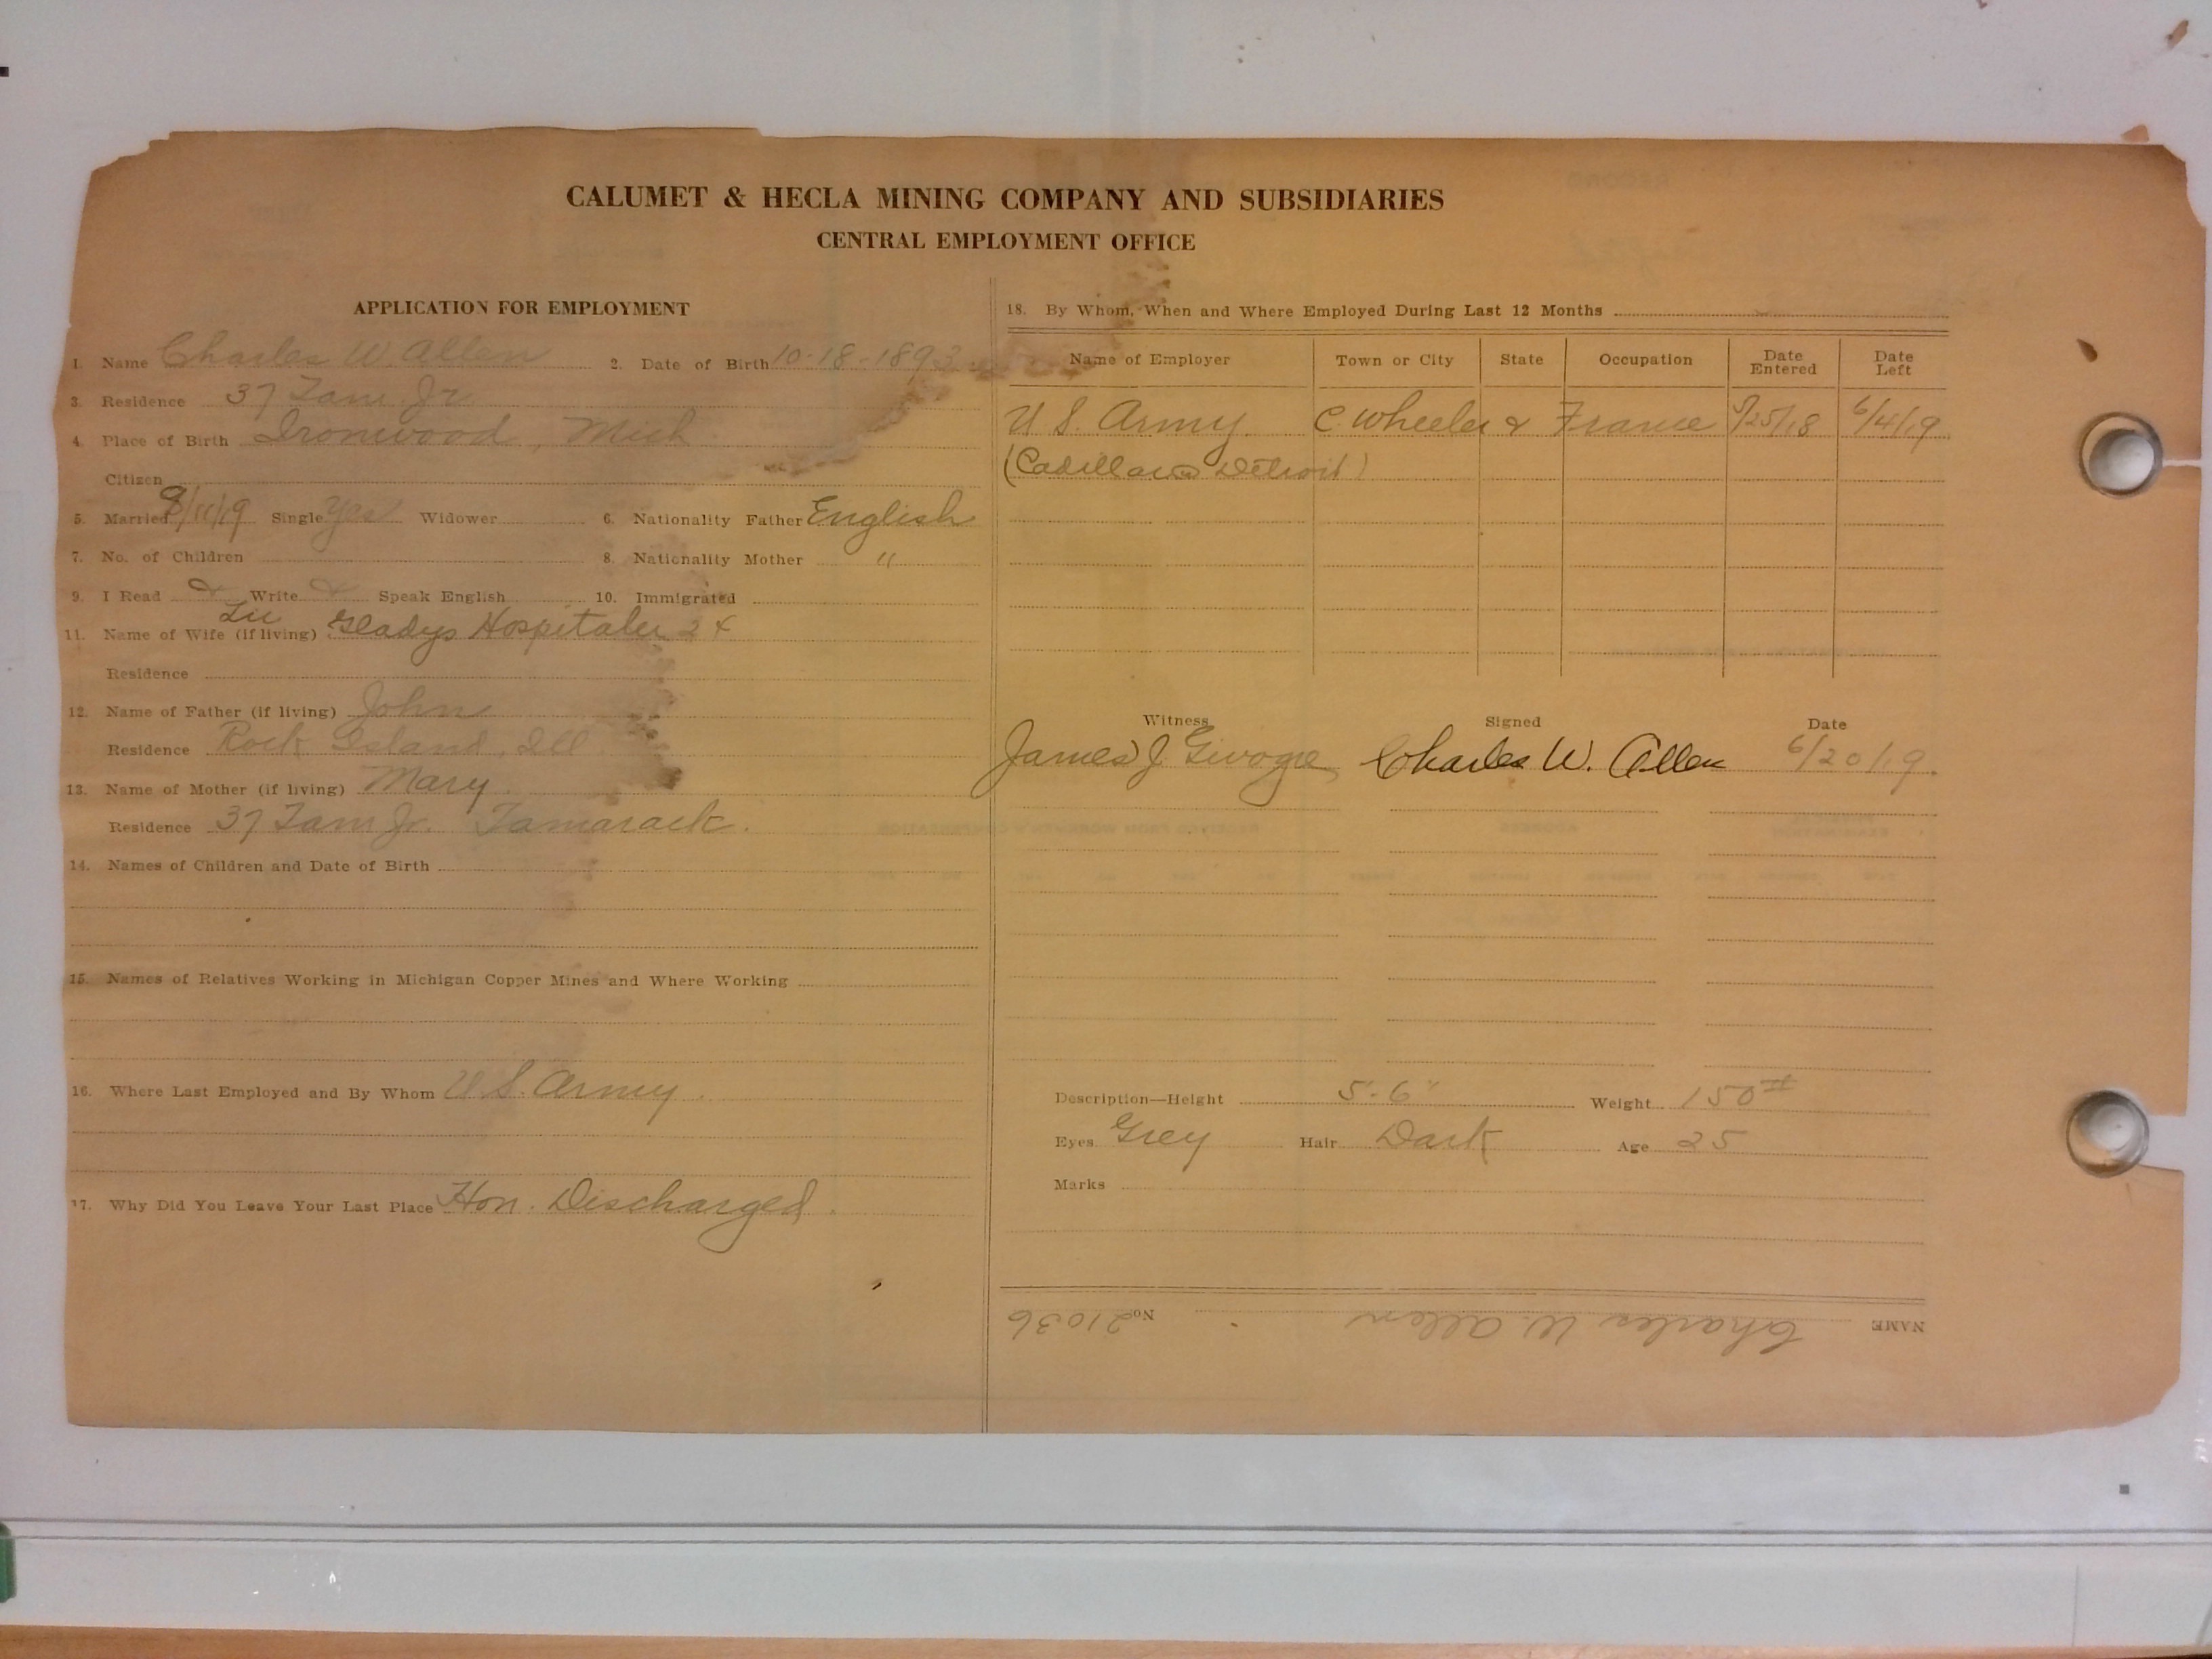 CALUMET & HECLA MINING COMPANY AND SUBSIDIARIES
CENTRAL EMPLOYMENT OFFICE
APPLICATION FOR EMPLOYMENT
1. Name Charles W. Allen 2. Date of Birth 10-18-1893
3. Residence 37 Tam. Jr
4. Place of Birth Ironwood, Mich
Citizen
5. Married 9/11/19 Single Yes Widower 6. Nationality Father English
7. No. of Children 8. Nationality Mother "
9. I Read Write Speak English 10. Immigrated
11. Name of Wife (if living) Gladys Hospitaler 24
Residence
12. Name of Father (if living) John
Residence Rock Island, Ill
13. Name of Mother (if living) Mary
Residence 37 Tam Jr. Tamarack.
14. Names of Children and Date of Birth
15. Names of Relatives Working in Michigan Copper Mines and Where Working
16. Where Last Employed and By Whom U.S. Army.
17. Why Did You Leave Your Last Place Hon. Discharged.
18. By Whom, When and Where Employed During Last 12 Months
Name of Employer Town or City State Occupation Date Entered Date Left
U S. Army C. Wheeler & France /25/18 6/4/19
(Cadillac Detroit)
Witness Signed Date
James J Charles W. Allen 6/20/19.
Description—Height 5'-6" Weight 150#
Eyes Grey Hair Dark Age 25
Marks
NAME Charles W. Allen No. 21036